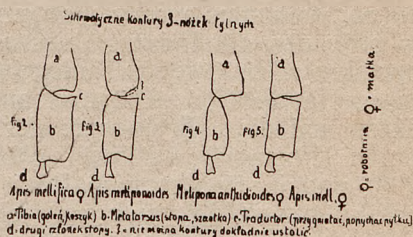 Schematyczne kontury 3-nóżek tylnych
a d a a
? c c
Fig 2. b Fig 3 b Fig 4. b Fig 5. b
d d d d
Apis mellifica ☿ Apis meliponoides Melipona anthidioides ☿ Apis mell. ♀
a-Tibia (goleń, koszyk) b. Metatarsus (stopa, szczotka) c. Traductor (przygniatać, popychać pyłku)
d. drugi członek stopy. ? = nie można kontury dokładnie ustalić.
☿ = robotnica ♀ = matka